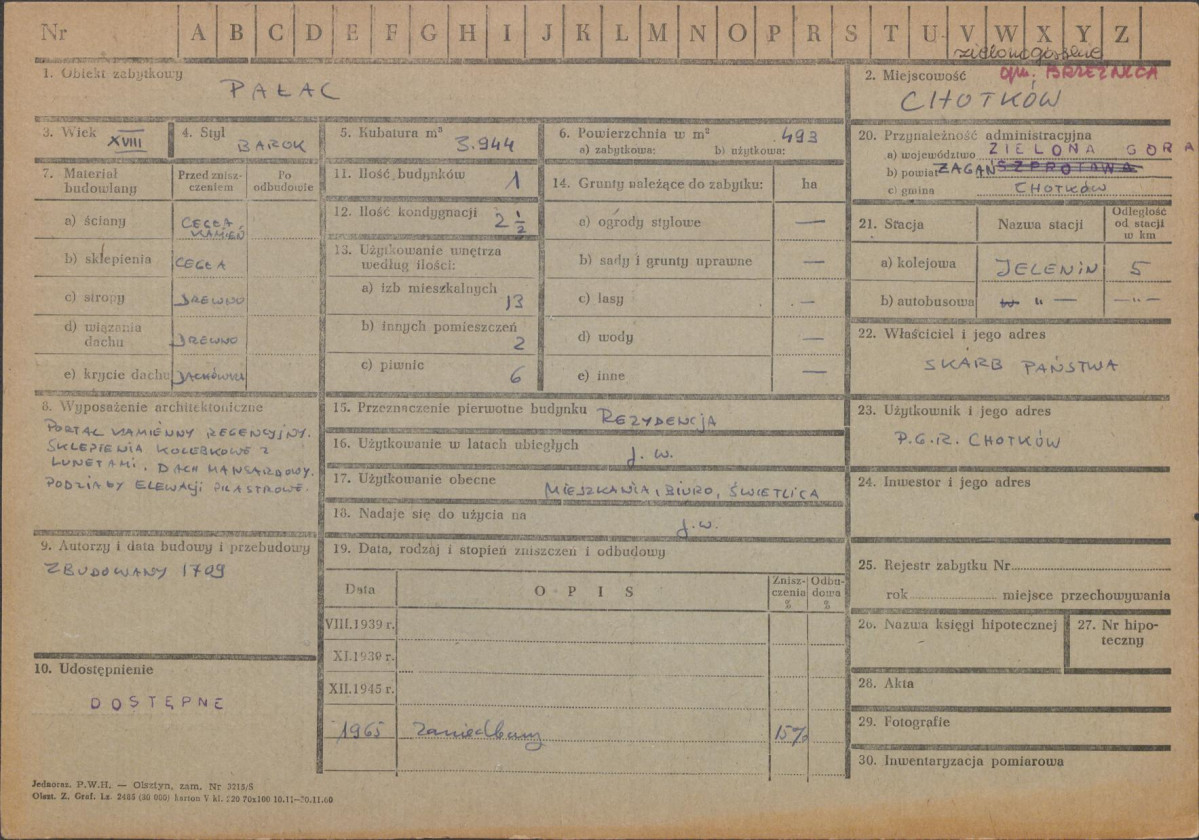 Nr A B C D E F G H I J K L M N O P R S T U V W X Y Z
zielonogórskie
1. Obiekt zabytkowy
PAŁAC
2. Miejscowość
gm. BRZEŹNICA
CHOTKÓW
3. Wiek XVIII
4. Styl BAROK
5. Kubatura m³ 3.944
6. Powierzchnia w m² 493
a) zabytkowa: b) użytkowa:
7. Materiał budowlany
Przed zniszczeniem
Po odbudowie
a) ściany CEGŁA KAMIEŃ
b) sklepienia CEGŁA
c) stropy DREWNO
d) wiązania dachu DREWNO
e) krycie dachu DACHÓWKA
8. Wyposażenie architektoniczne
PORTAL KAMIENNY REGENCYJNY.
SKLEPIENIA KOLEBKOWE Z
LUNETAMI. DACH MANSARDOWY.
PODZIAŁY ELEWACJI PILASTROWE.
9. Autorzy i data budowy i przebudowy
ZBUDOWANY 1709
10. Udostępnienie
DOSTĘPNE
11. Ilość budynków 1
12. Ilość kondygnacji 2 1/2
13. Użytkowanie wnętrza
według ilości:
a) izb mieszkalnych 13
b) innych pomieszczeń 2
c) piwnic 6
14. Grunty należące do zabytku: ha
a) ogrody stylowe —
b) sady i grunty uprawne —
c) lasy —
d) wody —
e) inne —
15. Przeznaczenie pierwotne budynku REZYDENCJA
16. Użytkowanie w latach ubiegłych j. w.
17. Użytkowanie obecne MIESZKANIA, BIURO, ŚWIETLICA
18. Nadaje się do użycia na j. w.
19. Data, rodzaj i stopień zniszczeń i odbudowy
Data
OPIS
Zniszczenia %
Odbudowa %
VIII.1939 r.
XI.1939 r.
XII.1945 r.
1965 zaniedbany 15%
20. Przynależność administracyjna
a) województwo ZIELONA GÓRA
b) powiat ŻAGAŃ SZPROTAWA
c) gmina CHOTKÓW
21. Stacja
Nazwa stacji
Odległość od stacji w km
a) kolejowa JELENIN 5
b) autobusowa — " — — " —
22. Właściciel i jego adres
SKARB PAŃSTWA
23. Użytkownik i jego adres
P.G.R. CHOTKÓW
24. Inwestor i jego adres
25. Rejestr zabytku Nr
rok miejsce przechowywania
26. Nazwa księgi hipotecznej
27. Nr hipoteczny
28. Akta
29. Fotografie
30. Inwentaryzacja pomiarowa
Jednoraz. P.W.H. — Olsztyn, zam. Nr 3215/S
Olszt. Z. Graf. Lz. 2485 (30 000) karton V kl. 220 70x100 10.11—20.11.60